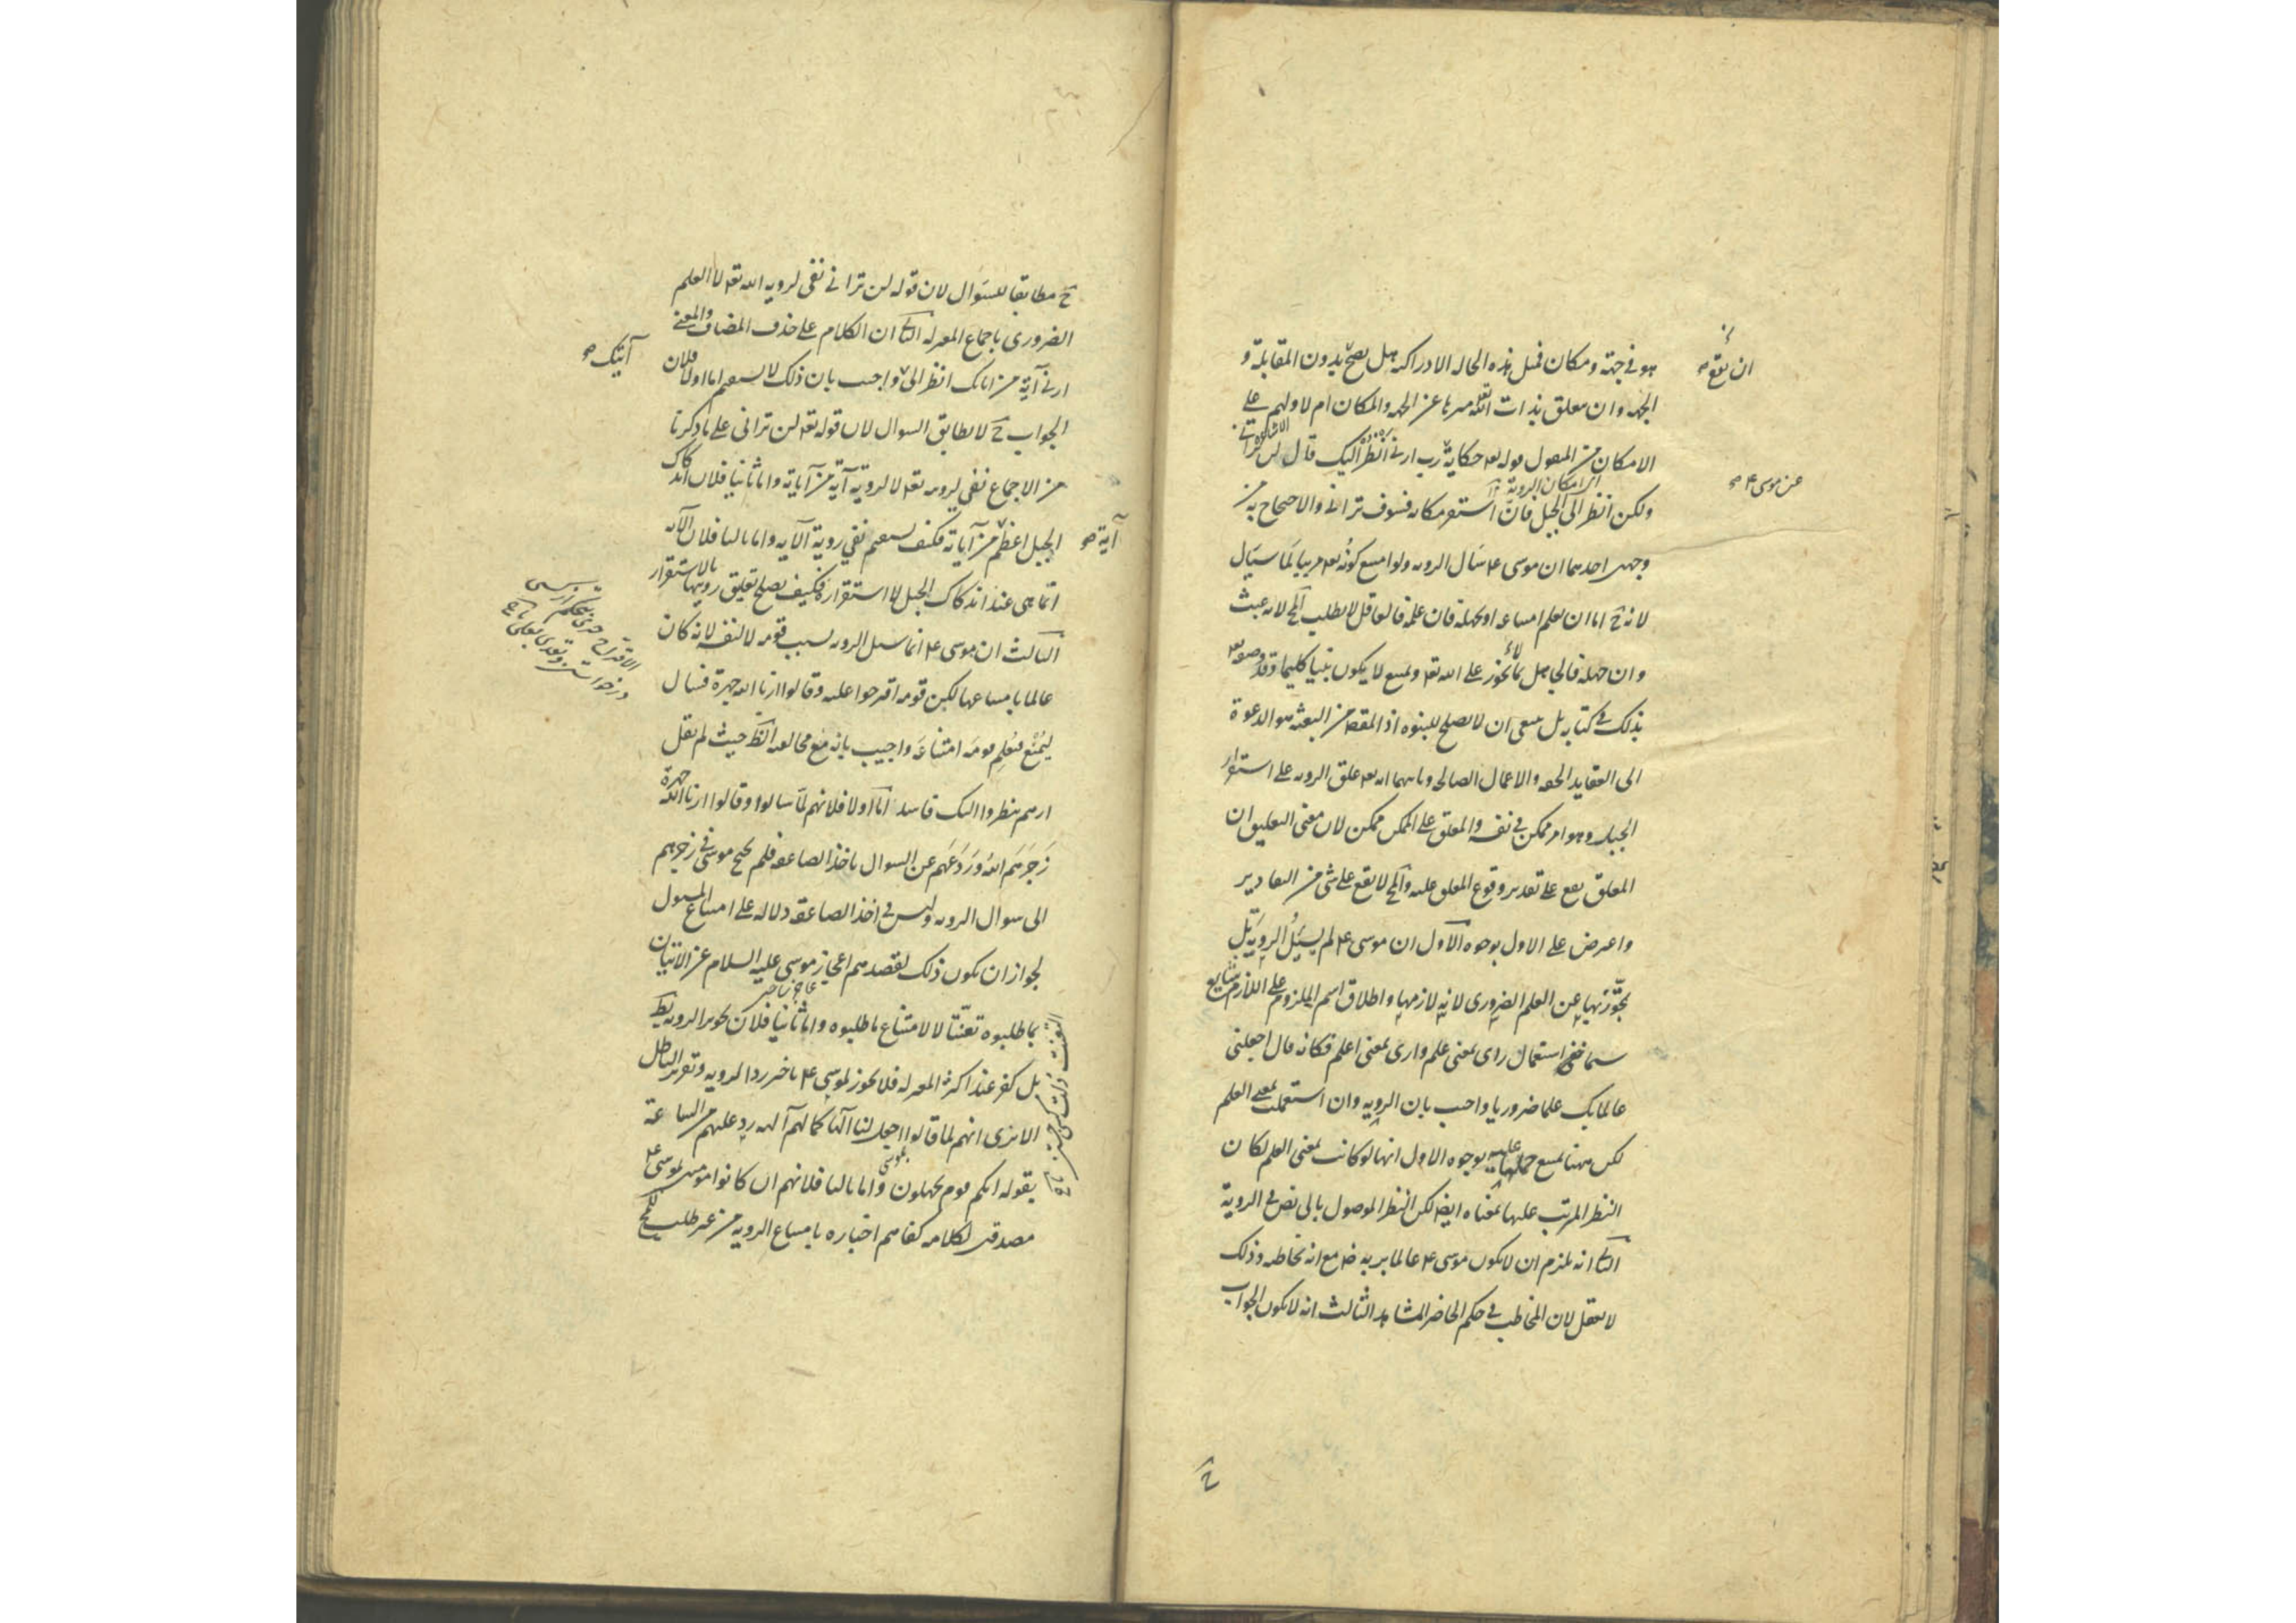 هو فى جهة ومكان فمثل هذه الحالة الادراكية هل يصح بدون المقابلة و
الجهة وان تعلق بذات الله تعه منزها عن الجهة والمكان ام لا ولهم على
الامكان من المنقول قوله تعه حكاية رب ارنى انظر اليك قال لن ترانى
اى امكان الروية
ولكن انظر الى الجبل فان استقر مكانه فسوف ترانى والاحتجاج به من
وجهين احدهما ان موسى ع م سَال الروية ولو امتنع كونُه تعه مرييا لَما سَيَال
لانه ح اما ان يعلم امتناعه او يجهله فان علمه فالعاقل لا يطلب المح لانه عبث
وان جهله فالجاهل بما لا يجوز على الله تعه ويمتنع لا يكون نبيا كليما وقد وصفه تعه
بذلك فى كتابه بل ينبغى ان لا يصلح للنبوة اذ المقصد من البعثة هو الدعوة
الى العقايد الحقه والاعمال الصالحة وثانيهما انه تعه علق الروية على استقرار
الجبل وهو امر ممكن فى نفسه والمعلق على الممكن ممكن لان معنى التعليق ان
المعلق يقع على تقدير وقوع المعلق عليه والمح لا يقع على شى من التقادير
واعترض على الاول بوجوه الاول ان موسى ع م لم يسئل الروية بَل
تجوَّز بها عن العلم الضرورى لانه لازمها واطلاق اسم الملزوم على اللازم شايع
سيما استعمال راى بمعنى علم وارى بمعنى اعلم فكانه قال اجعلنى
عالما بك علما ضروريا واجيب بان الروية وان استعملت بمعنى العلم
لكن ههنا يمتنع حملها عليه بوجوه الاول انها لو كانت بمعنى العلم لكان
النظر المرتب عليها بمعناه ايضا لكن النظر الموصول بالى نص فى الروية
الثا انه يلزم ان لا يكون موسى ع م عالما بربه ض مع انه يخاطبه وذلك
لا يعقل لان المخاطب فى حكم الحاضر المشاهد الثالث انه لا يكون الجواب
عن موسى ع م
ح
ح مطابقا للسَوال لان قوله لن ترانى نفى لروية الله تعه لا العلم
الضرورى باجماع المعتزلة الثا ان الكلام على حذف المضاف والمعنى
ارنى آية من اياتك انظر الى واجيب بان ذلك لا يستقيم اما اولا فلان
الجواب ح لا يطابق السوال لان قوله تعه لن ترانى على ما ذكرنا
من الاجماع نفى لرويته تعه لا لروية آية من آياته واما ثانيا فلان اندكاك
الجبل اعظم من آياته فكيف يستقيم نفى روية الآيه واما ثالثا فلان الآيه
انما هى عند اندكاك الجبل لا استقراره فكيف يصلح تعليق رويتها بالاستقرار
الثالث ان موسى ع م انما سئل الروية بسبب قومه لا لنفسه لانه كان
عالما بامتناعها لكن قومه اقترحوا عليه وقالوا ارنا الله جهرة فسال
ليُمنَع فيُعلِم قومَه امتناعَه واجيب بانه مع مخالفة الظ حيث لم يقل
ارهم ينظروا اليك فاسد اما اولا فلانهم لَمّا سالوا وقالوا ارنا الله جهرة
زَجَرَهم الله ورَدَعَهم عن السوال باخذ الصاعقه فلم يحتج موسى فى زجرهم
الى سوال الروية وليس فى اخذ الصاعقة دلاله على امتناع المسول
لجواز ان يكون ذلك لقصدهم اعجاز موسى عليه السلام عن الاتيان
بما طلبوه تعنّتا لا لامتناع ما طلبوه واما ثانيا فلان تجويز الروية بط
بل كفر عند اكثر المعتزلة فلا يجوز لموسى ع م تاخير رد الروية وتقرير الباطل
الا ترى انهم لما قالوا اجعل لنا الٰها كما لهم آلهه رد عليهم من الساعة
بقوله انكم قوم تجهلون واما ثالثا فلانهم ان كانوا مومنين لموسى ع م
مصدقين لكلامه كفاهم اخباره بامتناع الروية من غير طلب للمح
آيتك
آية